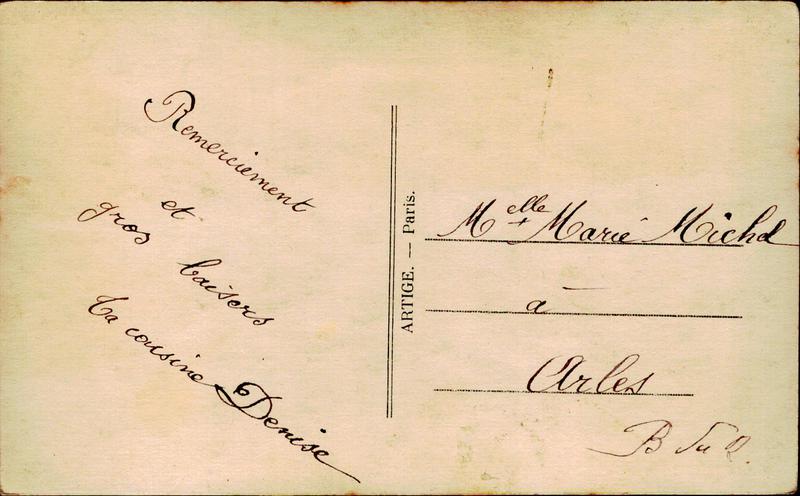 Remerciement
et
gros baisers
Ta cousine Denise
ARTIGE. — Paris.
Melle Marie Michel
à
Arles
B du R.